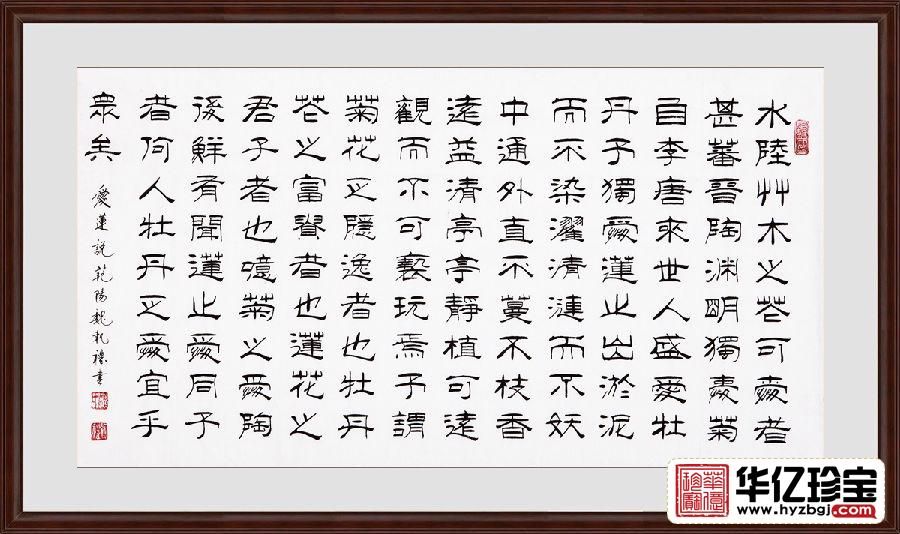 水陸艸木之芲可愛者
甚蕃晉陶渊明獨愛菊
自李唐來世人盛愛牡
丹予獨愛蓮之出淤泥
而不染濯清漣而不妖
中通外直不蔓不枝香
遠益清亭亭靜植可遠
觀而不可褻玩焉予謂
菊花之隱逸者也牡丹
芲之富貴者也蓮花之
君子者也噫菊之愛陶
後鮮有聞蓮之愛同予
者何人牡丹之愛宜乎
眾矣
愛蓮說范陽魏礼禮書
华亿珍宝
www.hyzbgj.com